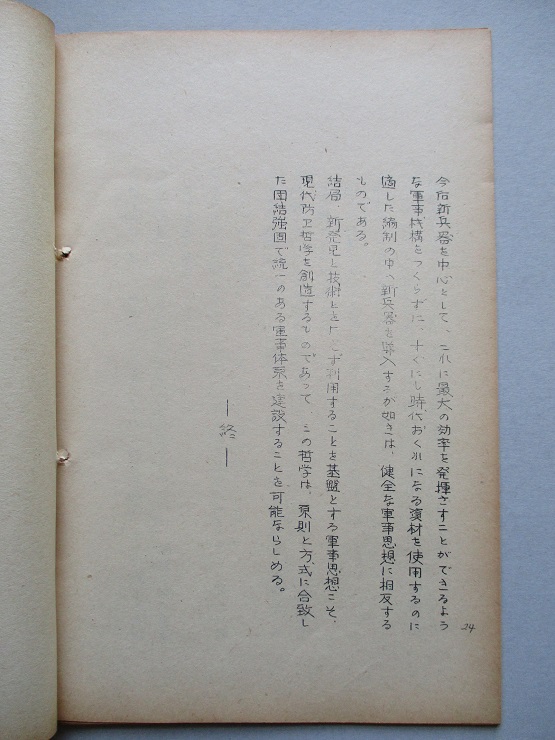 今后新兵器を中心として、これに最大の効率を発揮さすことができるよう
な軍事机構をつくらずに、すぐにも時代おくれになる資材を使用するのに
適した編制の中へ新兵器を導入するが如きは、健全な軍事思想に相反する
ものである。
結局、新発見と技術とを 利用することを基盤とする軍事思想こそ、
現代防卫哲学を創造するものであって、この哲学は、原則と方式に合致し
た団結強固で統一のある軍事体系を建設することを可能ならしめる。
―終―
24